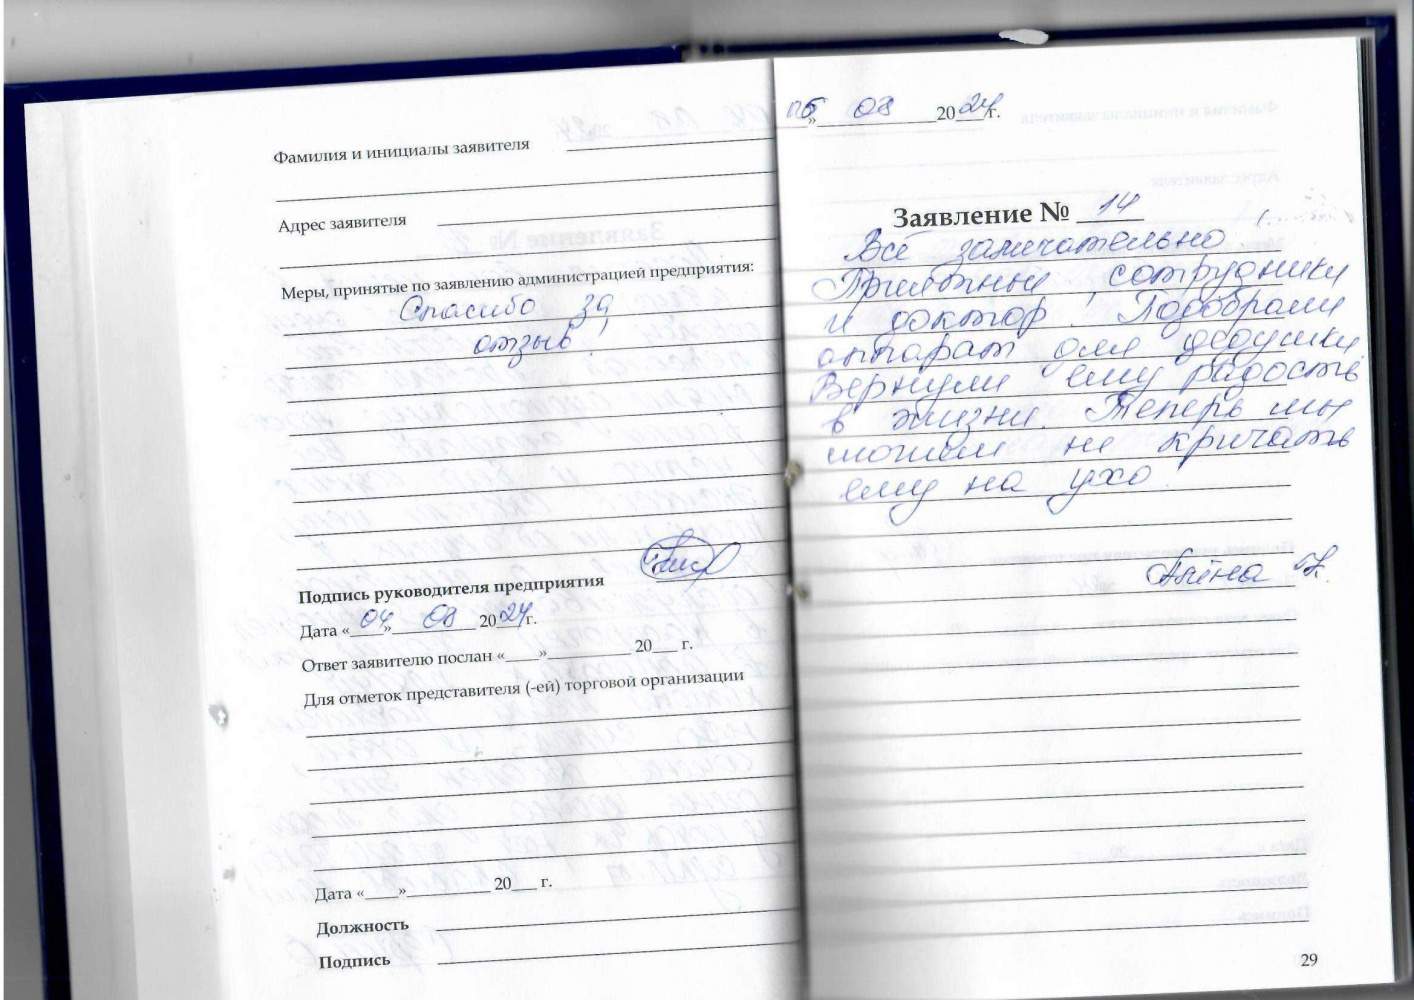 Фамилия и инициалы заявителя
Адрес заявителя
Меры, принятые по заявлению администрацией предприятия:
Спасибо за
отзыв!
Подпись руководителя предприятия
Дата «04» 08 2024г.
Ответ заявителю послан «___»__________ 20___ г.
Для отметок представителя (-ей) торговой организации
Дата «____»__________ 20___ г.
Должность
Подпись
05» 08 2024г.
Заявление № 14
Всё замечательно
Приятные, сотрудники
и доктор. Подобрали
аппарат для дедушки.
Вернули ему радость
в жизни. Теперь мы
можем не кричать
ему на ухо
Алёна
29